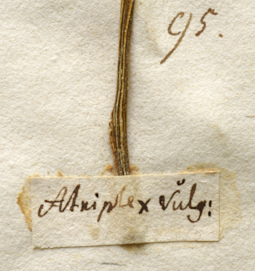 95.
Atriplex vulg: